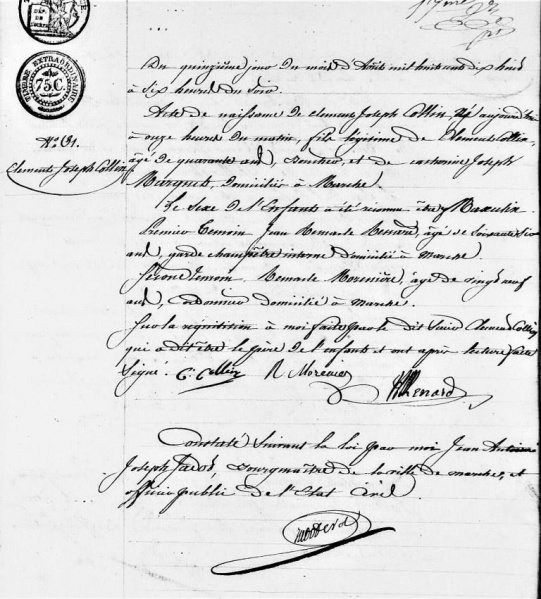 TIMBRE EXTRAORDINAIRE
75 C.
N.° 31.
Clement Joseph Collin
Du quinzième jour du mois d'Août mil huit cent dix huit
à Six heures du Soir.
Acte de naissance de clement Joseph Collin, né aujourd'hui
à onze heures du matin, fils légitime de Clement Collin
âgé de quarante ans, Boucher, et de catherine Joseph
domiciliés à Marche
Le Sexe de l'Enfant a été reconnu être Masculin.
Premier Temoin Jean Remacle Renard, âgé de Soixante
ans, garde champêtre interne domicilié à marche.
Second temoin Remacle âgé de vingt neuf
ans, Cordonnier domicilié à marche.
Sur la réquisition à moi faite par le dit Sieur Clement Collin
qui a dit être le père de l'enfant et ont après lecture faite
Signé. C. Collin R Renard
Constaté Suivant la loi par moi Jean Antoine
Joseph Jacob, Bourgmaître de la ville de marche, et
officier public de l'Etat Civil